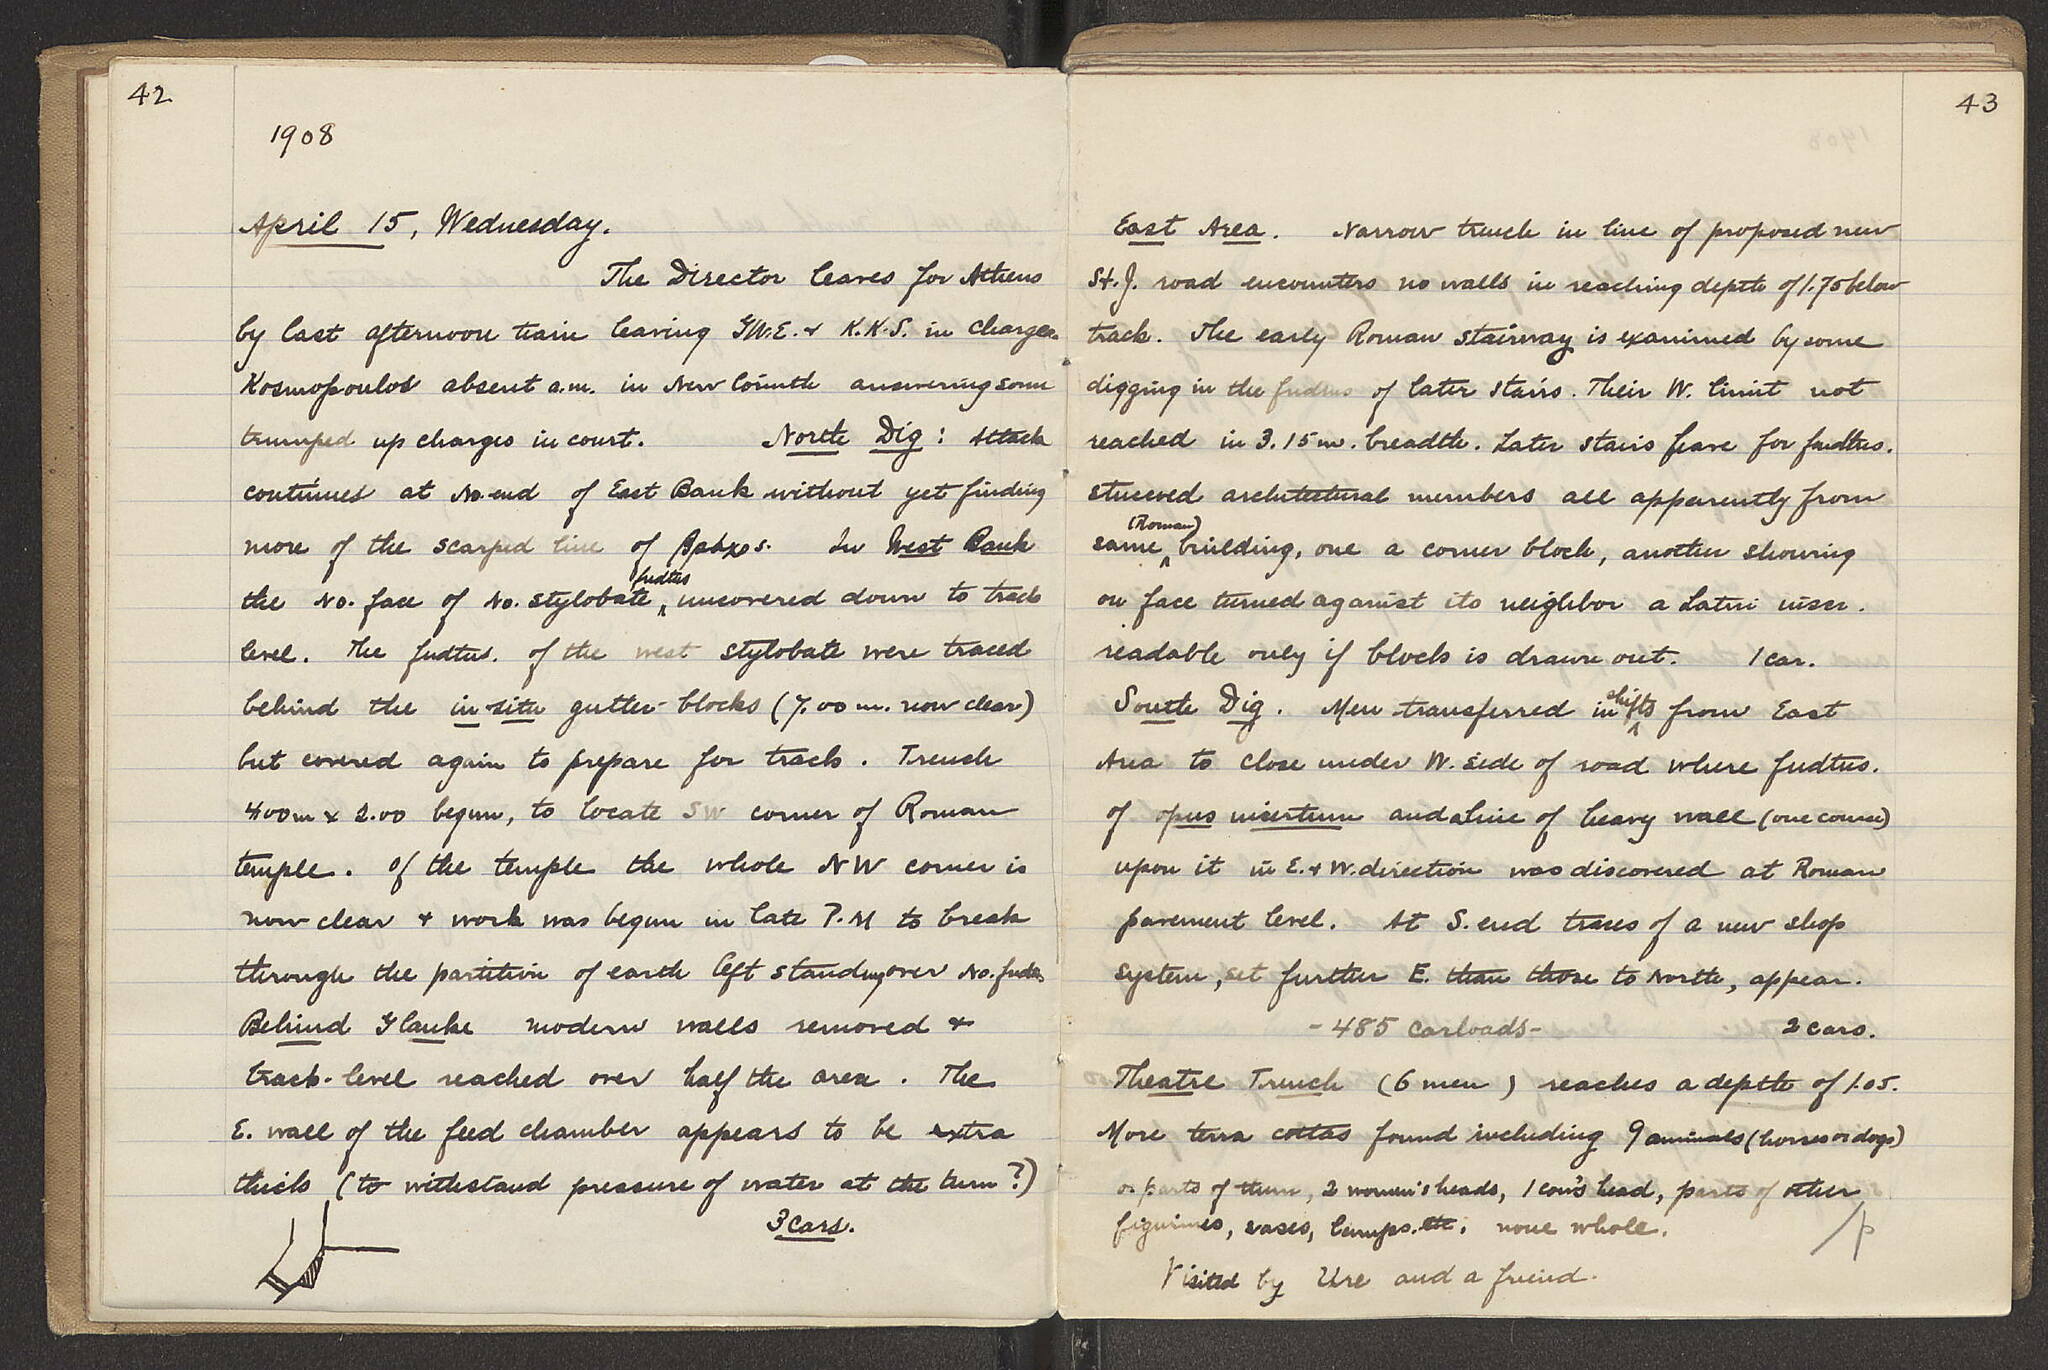 42
1908
April 15, Wednesday.
The Director leaves for Athens
by last afternoon train leaving G.W.E. & K.K.S. in charge.
Kosmopoulos absent a.m. in New Corinth answering some
trumped up charges in court. North Dig: Attack
continues at No. end of East Bank without yet finding
more of the scarped line of βράχος. In West Bank
the No. face of No. stylobate fndtns uncovered down to track
level. The fndtns. of the west stylobate were traced
behind the in situ gutter-blocks (7.00 m. now clear)
but covered again to prepare for track. Trench
4.00m x 2.00 begun, to locate SW corner of Roman
temple. Of the temple the whole NW corner is
now clear & work was begun in late P.M to break
through the partition of earth left standing over No. fndtn.
Behind Glauke modern walls removed &
track-level reached over half the area. The
E. wall of the feed chamber appears to be extra
thick (to withstand pressure of water at the turn?)
3 cars.
43
East Area. Narrow trench in line of proposed new
St. J. road encounters no walls in reaching depth of 1.75 below
track. The early Roman stairway is examined by some
digging in the fndtns of later stairs. Their W. limit not
reached in 3.15 m. breadth. Later stairs have for fndtns.
stuccoed architectural members all apparently from
same (Roman) building, one a corner block, another showing
on face turned against its neighbor a Latin inscr.
readable only if block is drawn out. 1 car.
South Dig. Men transferred in shifts from East
Area to close under W. side of road where fndtns.
of opus incertum and a line of heavy wall (one course)
upon it in E. & W. direction was discovered at Roman
pavement level. At S. end traces of a new shop
system, set further E. than those to North, appear.
- 485 carloads - 2 cars.
Theatre Trench (6 men) reaches a depth of 1.05.
More terra cottas found including 9 animals (horses or dogs)
or parts of them, 2 women's heads, 1 cow's head, parts of other
figurines, vases, lamps. etc. none whole.
Visited by Ure and a friend.